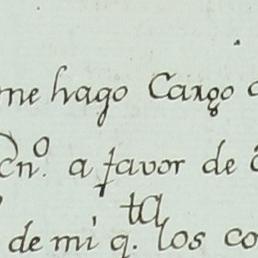 me hago Cargo
cnº. a favor de
ta
de mi q. los co